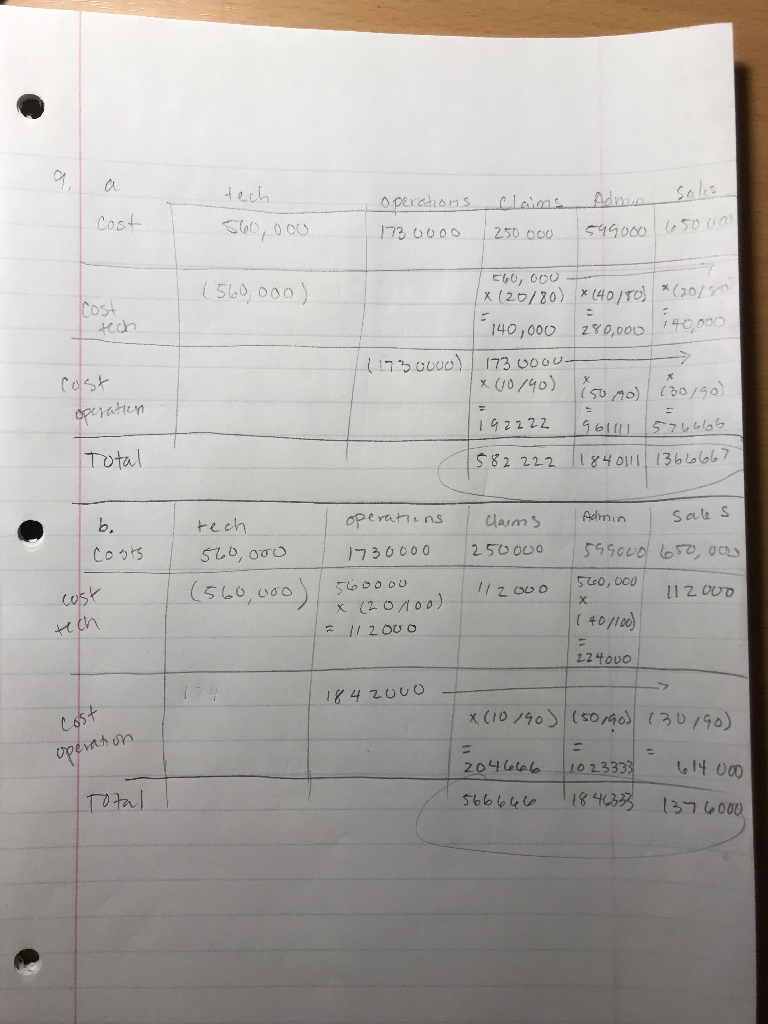 9. a tech operations Claims Admin Sales
Cost 560,000 1730000 250 000 599000 650 000
Cost tech (560,000) 560,000 → 
x (20/80) x (40/80) x (20/80)
= = =
140,000 280,000 140,000
Cost operation (1730000) 1730000 →
x (10/90) x (50/90) x (30/90)
= = =
192222 961111 576666
Total 582 222 1840111 1366667
b. tech operations Claims Admin Sales
Costs 560,000 1730000 250000 599000 650,000
cost tech (560,000) 560000 112000 560,000 112000
x (20/100) x
= 112000 (40/100)
=
224000
Cost operation 1842000 →
x (10/90) (50/90) (30/90)
= = =
204666 1023333 614 000
Total 566666 1846333 1376000